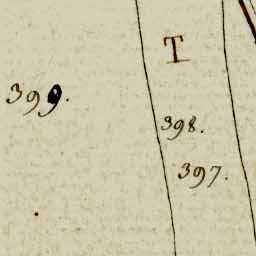 T
399.
398.
397.